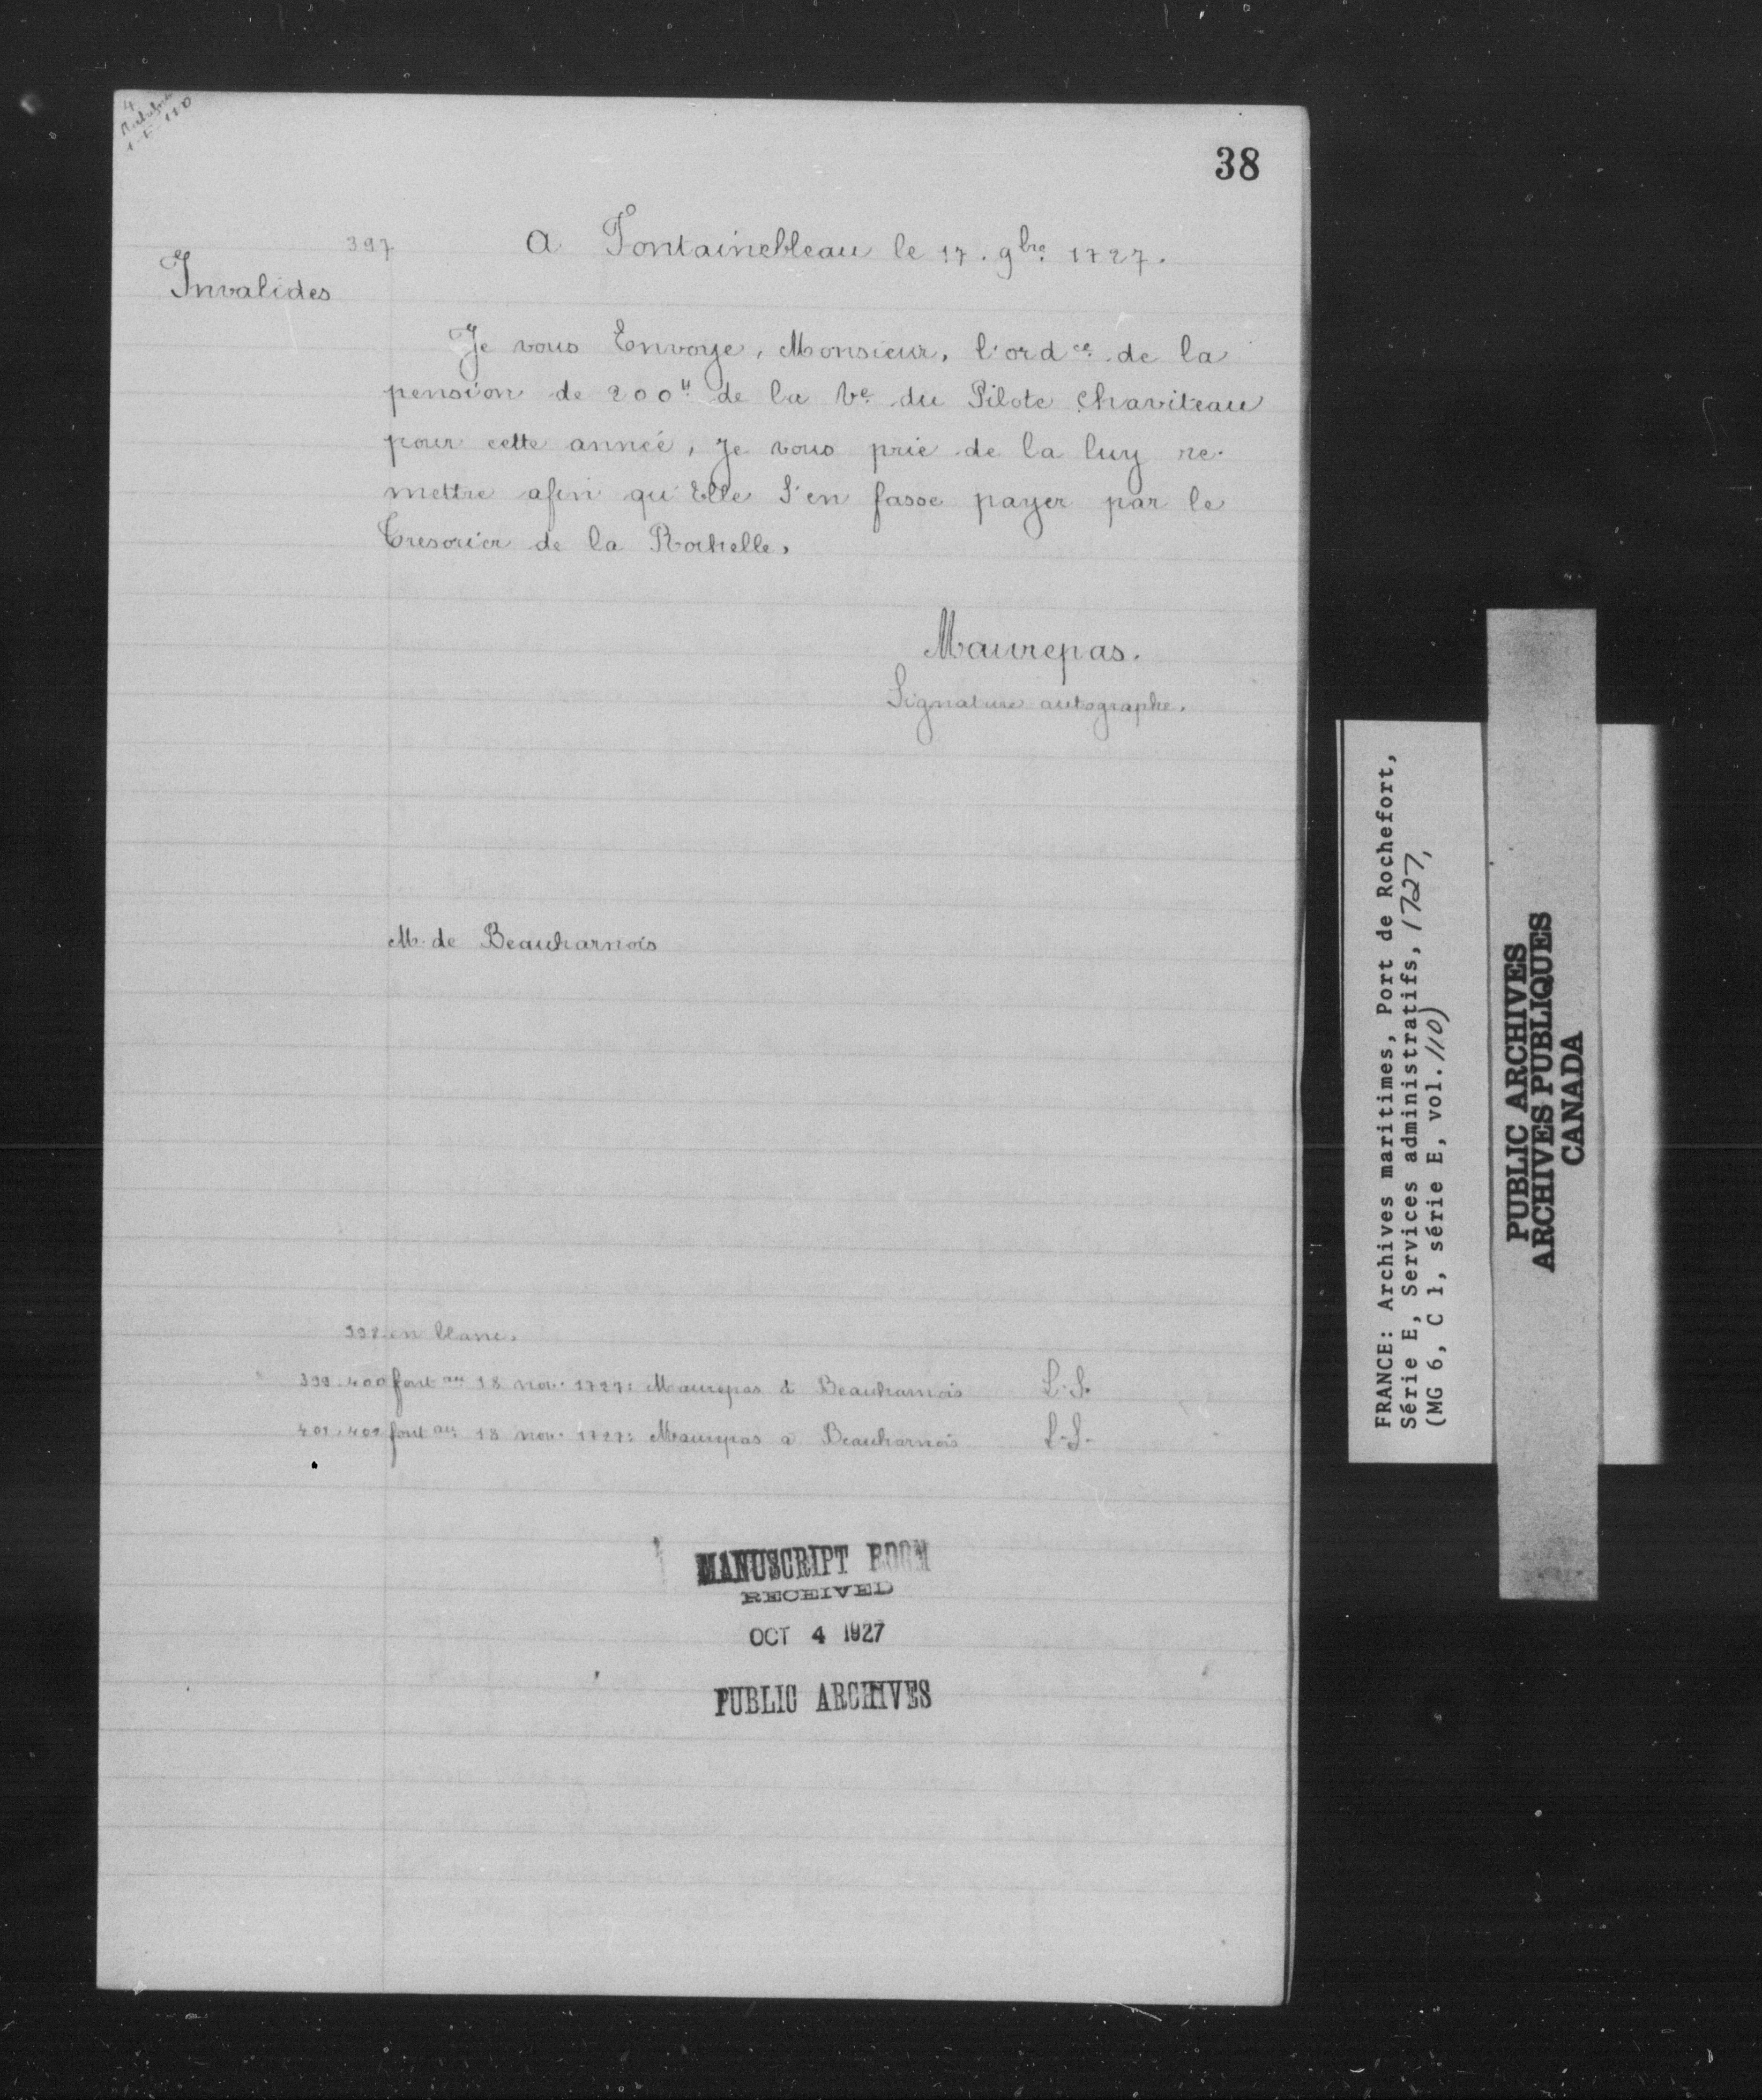 38
397
A Fontainebleau le 17. 9bre 1727.
Invalides
Je vous Envoye, Monsieur, l'ordce de la
pension de 200tt de la Ve du Pilote Chaviteau
pour cette anneé, Je vous prie de la luy re-
mettre afin qu'Elle S'en fasse payer par le
Tresorier de la Rochelle,
Maurepas.
Signature autographe.
M. de Beauharnois
398 en blanc.
399.400 font au 18 nov. 1727: Maurepas à Beauharnois L.S.
401.402 font au 18 nov. 1727: Maurepas a Beauharnois L.S.
MANUSCRIPT ROOM
RECEIVED
OCT 4 1927
PUBLIC ARCHIVES
FRANCE: Archives maritimes, Port de Rochefort,
Série E, Services administratifs, 1727,
(MG 6, C 1, série E, vol. 110)
PUBLIC ARCHIVES
ARCHIVES PUBLIQUES
CANADA